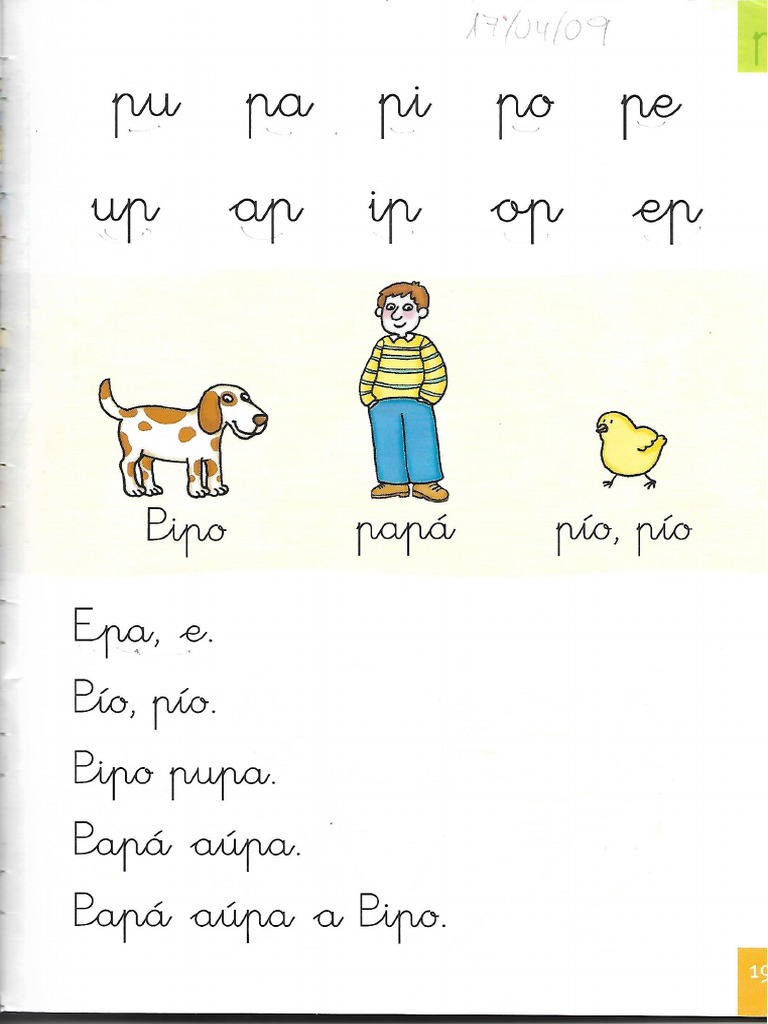 17/04/09
p
pu pa pi po pe
up ap ip op ep
Pipo papá pío, pío
Epa, e.
Pío, pío.
Pipo pupa.
Papá aúpa.
Papá aúpa a Pipo.
19